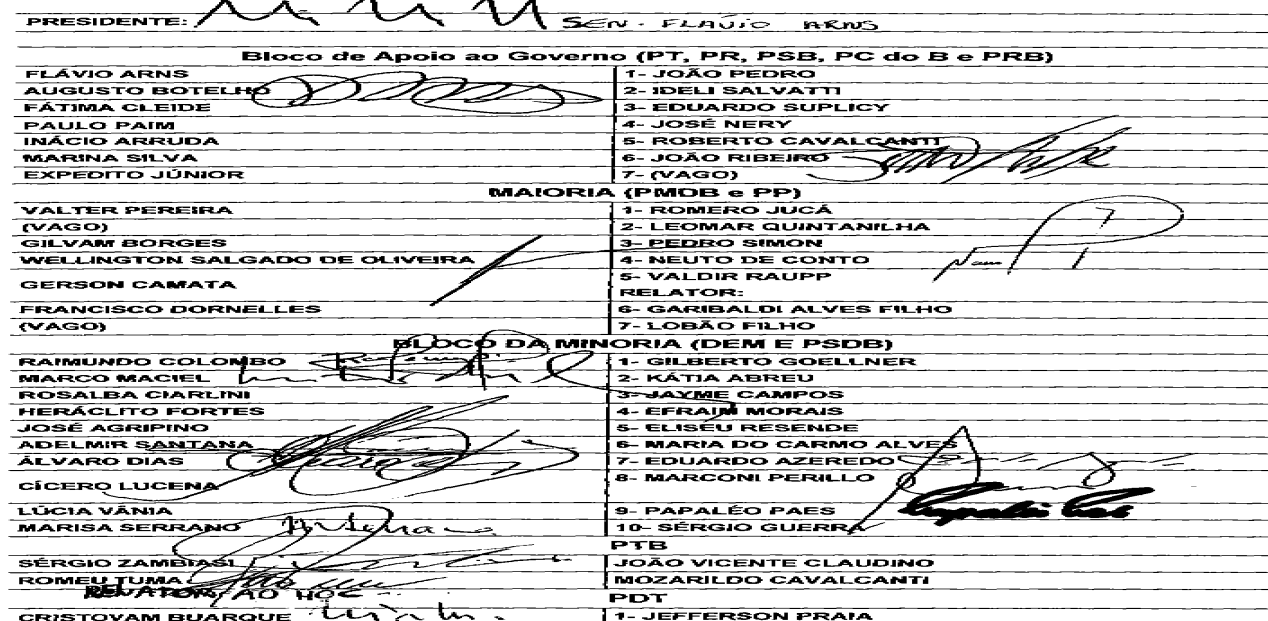 PRESIDENTE: SEN. FLAVIO ARNS
Bloco de Apoio ao Governo (PT, PR, PSB, PC do B e PRB)
FLÁVIO ARNS 1- JOÃO PEDRO
AUGUSTO BOTELHO 2- IDELI SALVATTI
FÁTIMA CLEIDE 3- EDUARDO SUPLICY
PAULO PAIM 4- JOSÉ NERY
INÁCIO ARRUDA 5- ROBERTO CAVALCANTI
MARINA SILVA 6- JOÃO RIBEIRO
EXPEDITO JÚNIOR 7- (VAGO)
MAIORIA (PMDB e PP)
VALTER PEREIRA 1- ROMERO JUCÁ
(VAGO) 2- LEOMAR QUINTANILHA
GILVAM BORGES 3- PEDRO SIMON
WELLINGTON SALGADO DE OLIVEIRA 4- NEUTO DE CONTO
GERSON CAMATA 5- VALDIR RAUPP
RELATOR:
FRANCISCO DORNELLES 6- GARIBALDI ALVES FILHO
(VAGO) 7- LOBÃO FILHO
BLOCO DA MINORIA (DEM E PSDB)
RAIMUNDO COLOMBO 1- GILBERTO GOELLNER
MARCO MACIEL 2- KÁTIA ABREU
ROSALBA CIARLINI 3- JAYME CAMPOS
HERÁCLITO FORTES 4- EFRAIM MORAIS
JOSÉ AGRIPINO 5- ELISEU RESENDE
ADELMIR SANTANA 6- MARIA DO CARMO ALVES
ÁLVARO DIAS 7- EDUARDO AZEREDO
CÍCERO LUCENA 8- MARCONI PERILLO
LÚCIA VÂNIA 9- PAPALÉO PAES
MARISA SERRANO 10- SÉRGIO GUERRA
PTB
SÉRGIO ZAMBIASI JOÃO VICENTE CLAUDINO
ROMEU TUMA MOZARILDO CAVALCANTI
RELATOR AD HOC
PDT
CRISTOVAM BUARQUE 1- JEFFERSON PRAIA